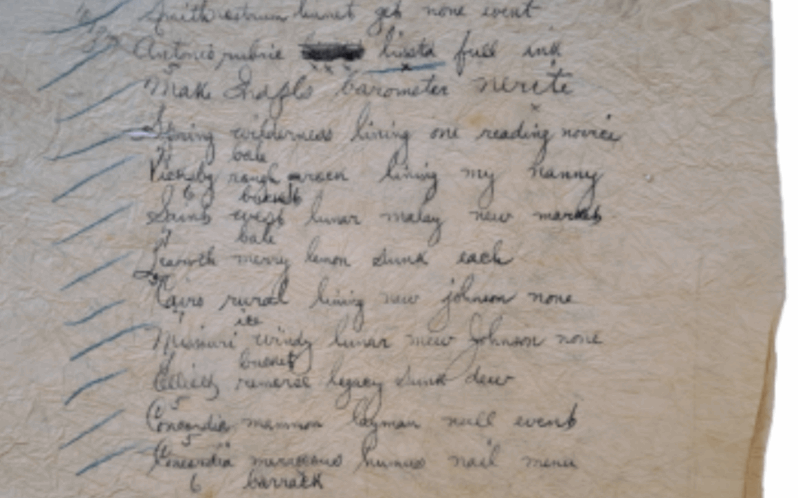 Smith nostrum linnet get none event
Antonio rubric lissta full ink
Make Indpls barometer nerite
Spring wilderness lining one reading novice
bale
Vicksbg rough lining my nanny
6 bucket
Saints west lunar malay new markets
bale
Leavwth merry lemon sunk each
Cairo rural lining new johnson none
ice
Missouri windy lunar mew Johnson none
bucket
Celliety remorse legacy sunk dew
Concordia mammon layman null events
Concordia merraccous humus nail menu
6 barrack